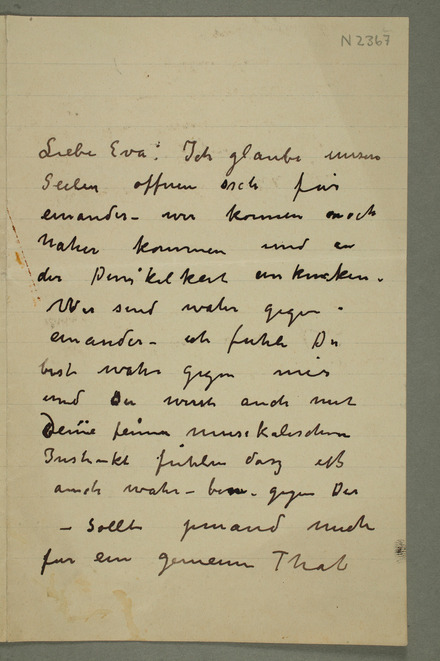 N 2367
Liebe Eva! Ich glaube unsere
Seelen öffnen sich für
einander – wir können noch
näher kommen und an
der Dunkelheit anknüpfen.
Wir sind wahr gegen-
einander – ich fühle Du
bist wahr gegen mir
und Du wirst auch mit
Deine feinen musekalischen
Instinkt fühlen dasz ich
auch wahr – bin – gegen Dir
– sollte jemand mich
für ein gemeine That